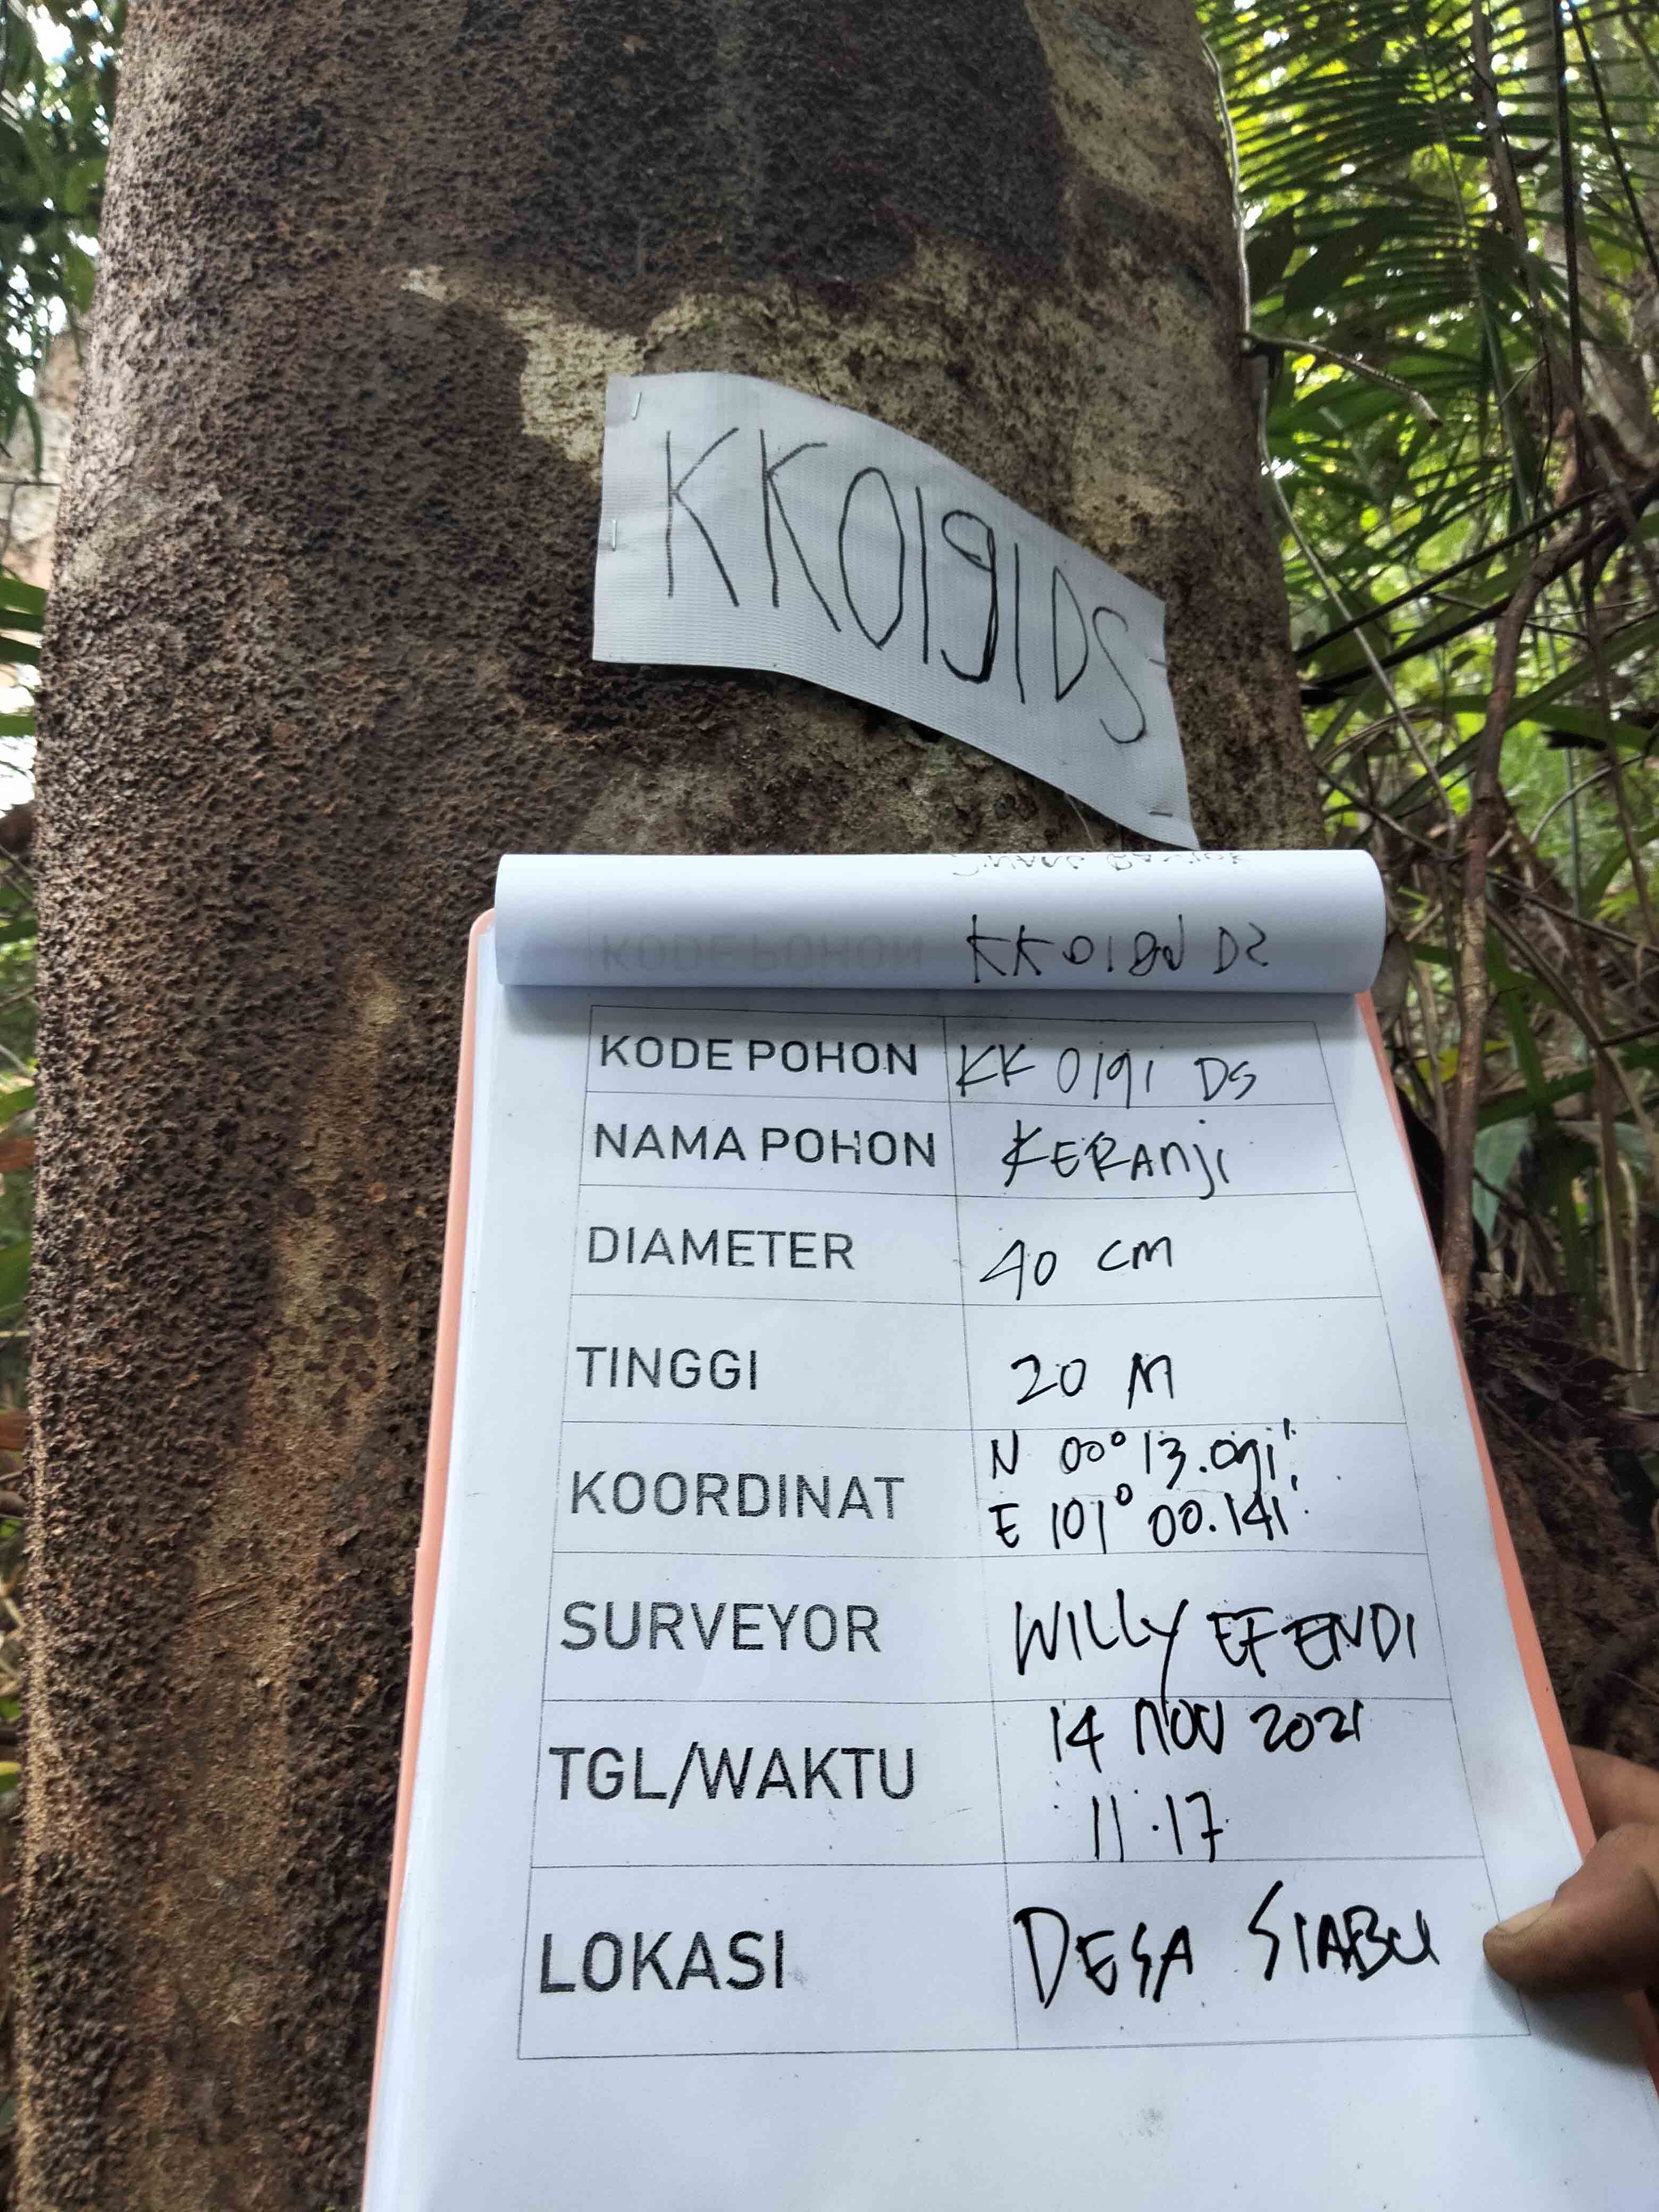 KK0191DS
KODE POHON KK 0191 DS
NAMA POHON KERANJI
DIAMETER 40 CM
TINGGI 20 M
KOORDINAT N 00° 13.091'
E 101° 00.141'
SURVEYOR WILLY EFENDI
TGL/WAKTU 14 NOV 2021
11.17
LOKASI DESA SIABU